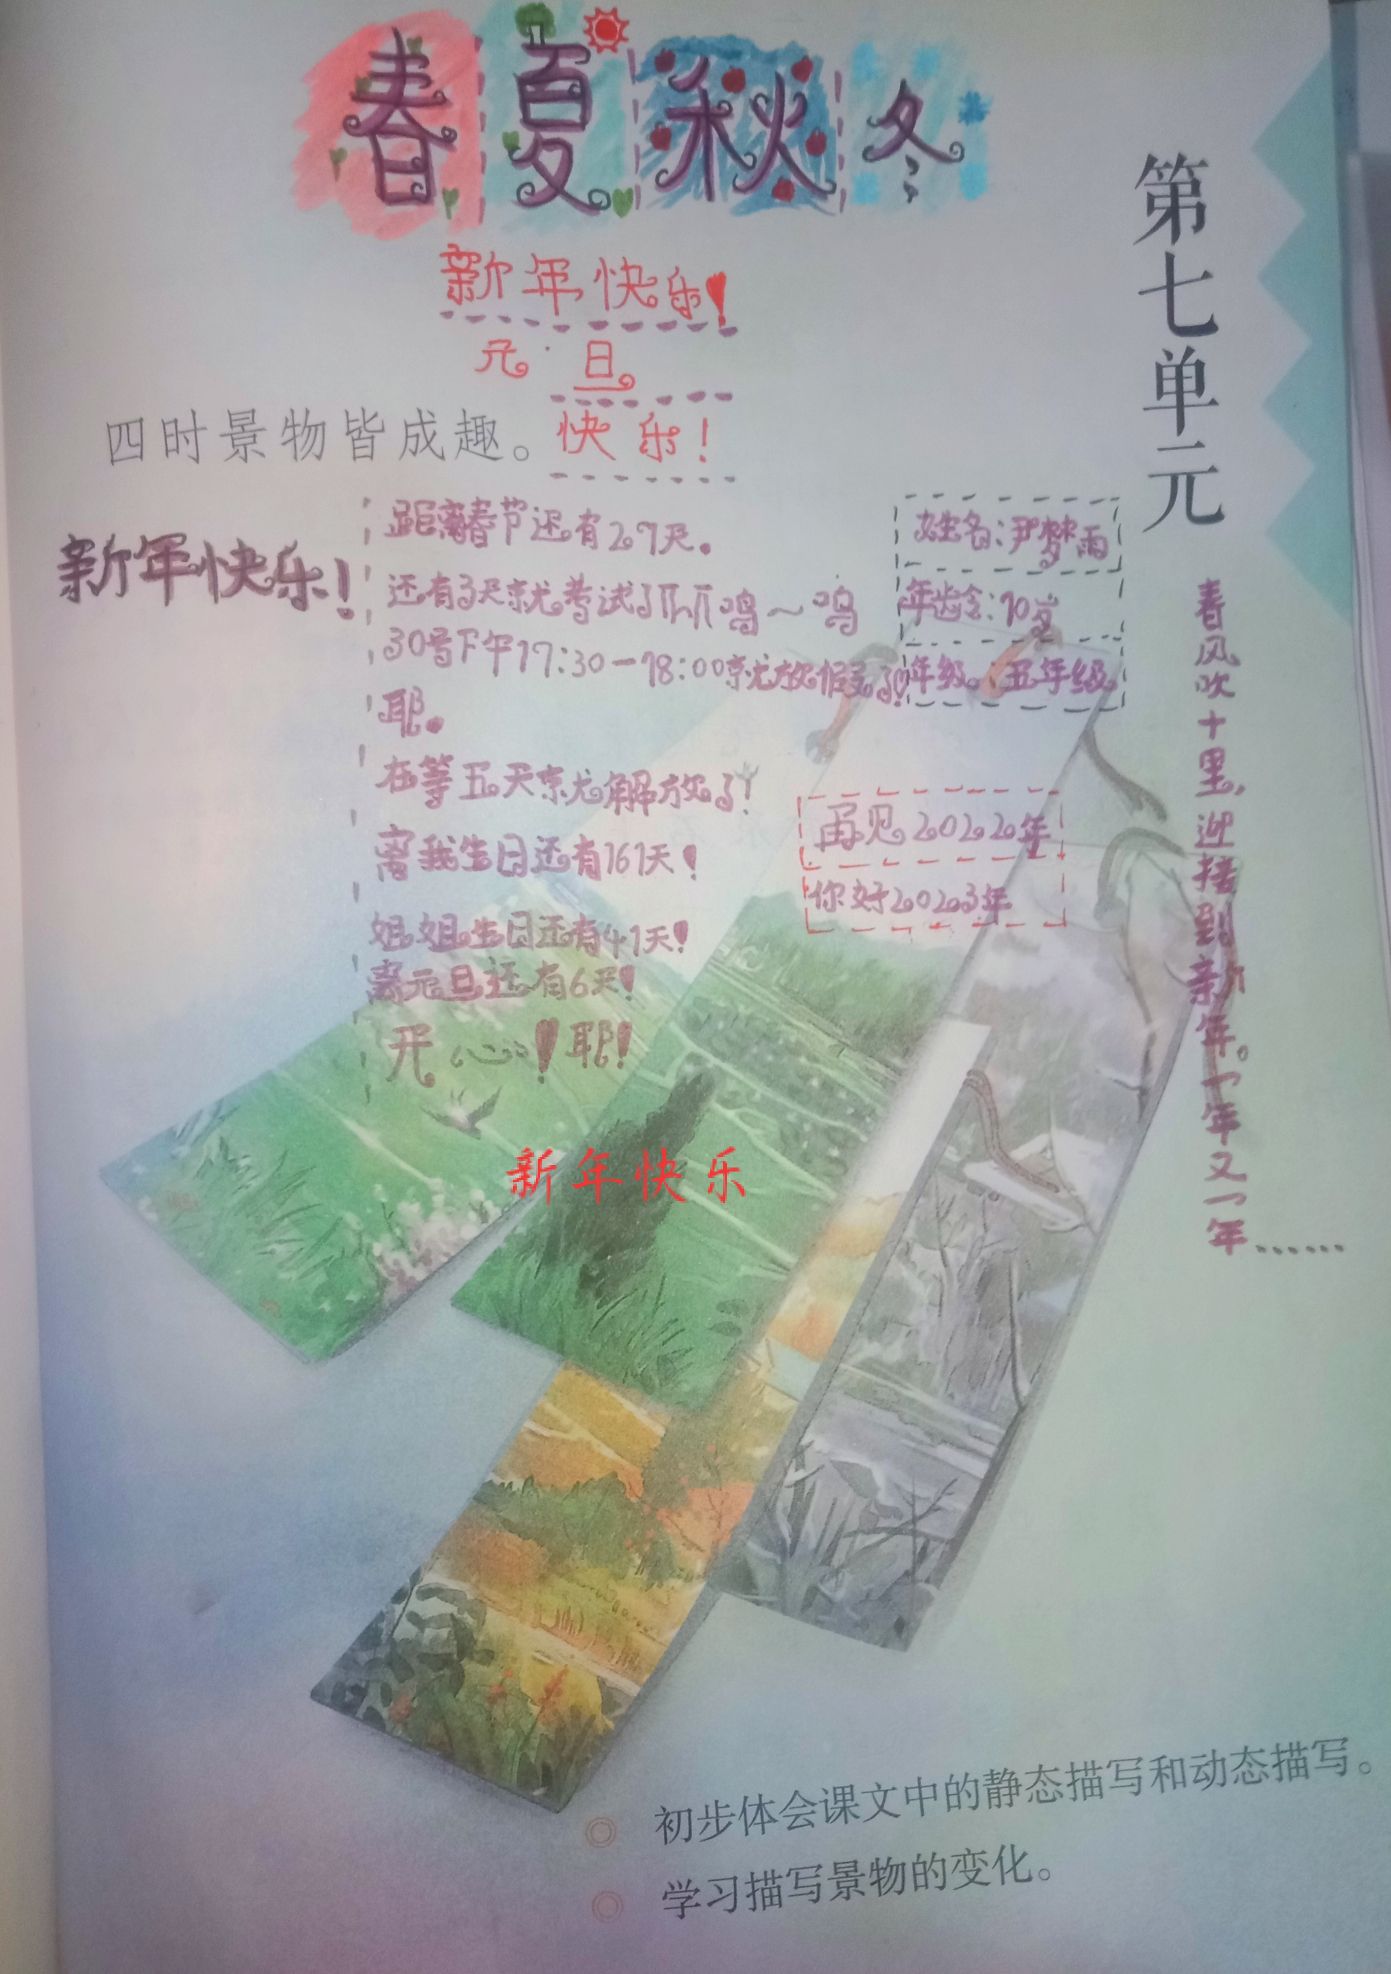 春夏秋冬
新年快乐！
元旦
快乐！
四时景物皆成趣。
第七单元
新年快乐！
距离春节还有27天。
还有3天就考试了爪爪呜～呜
30号下午17:30—18:00就放假了!
耶。
在等五天就解放了！
离我生日还有161天！
姐姐生日还有41天！
离元旦还有6天！
开心！耶！
姓名：尹梦雨
年龄：10岁
年级：五年级
再见2022年
你好2023年
春风吹十里，迎接到新年。一年又一年……
新年快乐
初步体会课文中的静态描写和动态描写。
学习描写景物的变化。